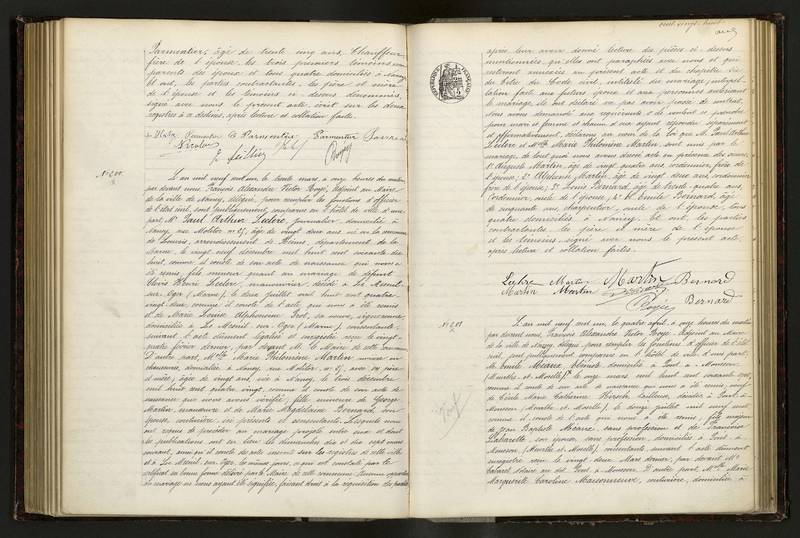 Parmentier, âgé de trente cinq ans, Chauffeur
frère de l'épouse, les trois premiers témoins non
parents des époux et tous quatre domiciliés à Nancy
Et ont, les parties contractantes, les père et mère
de l'épouse et les témoins ci-dessus dénommés,
signé avec nous le présent acte, écrit sur les deux
registres à ce destinés, après lecture et collation faite.
Parmentier
Nicolas
N° 200
L'an mil neuf cent un, le trente mars, à onze heures du matin
par devant nous François Alexandre Victor Boyé, Adjoint au Maire
de la ville de Nancy, délégué, pour remplir les fonctions d'officier
de l'état civil, sont publiquement comparus en l'hôtel de ville d'une
part, Mr Paul Arthur Leclère, journalier, domicilié à
Nancy, rue Molitor, n° 25, âgé de vingt deux ans, né en la commune
de Louvois, arrondissement de Reims, département de la
Marne, le vingt neuf décembre mil huit cent soixante dix
huit, comme il conste de son acte de naissance qui nous a
été remis, fils mineur quant au mariage de défunt
Henri Leclère, manouvrier, décédé à Le Mesnil
sur Oger (Marne), le deux juillet mil huit cent quatre
vingt deux, comme il conste de l'acte, que nous a été remis
et de Marie Louise Alphonsine sa veuve, vigneronne,
domiciliée à Le Mesnil sur Oger (Marne), consentante,
suivant l'acte dûment légalisé et enregistré reçu le vingt
quatre février dernier, par devant M. le Maire de cette commune
D'autre part, Melle Marie Philomène Martin
chaussures, domiciliée à Nancy, rue Molitor, n° 25, avec ses père
et mère, âgée de vingt ans, née à Nancy, le trois décembre
mil huit cent quatre vingt, comme il conste de son acte de
naissance que nous avons vérifié, fille mineure de George
Martin, manœuvre et de Marie Magdelaine Bernard, son
épouse, couturière, ici présents et consentants. Lesquels nous
ont requis de procéder au mariage projeté entre eux et dont
les publications ont eu lieu les dimanches dix et dix sept mars
courant, ainsi qu'il conste des actes inscrits sur les registres de cette ville
et à Le Mesnil sur Oger, les mêmes jours, ce qui est constaté par le
certificat en bonne forme délivré par le Maire de cette commune. Aucune opposition
au mariage ne nous ayant été signifiée, faisant droit à la réquisition des parties
cent vingt huit
après leur avoir donné lecture des pièces ci-dessus
mentionnées, qu'elles ont paraphées avec nous et qui
resteront annexées au présent acte et du chapitre six
du titre du Code civil, intitulé du mariage, interpel-
lation faite aux futurs époux et aux personnes autorisant
le mariage, ils ont déclaré ne pas avoir passé de contrat.
Nous avons demandé aux requérants s'ils veulent se prendre
pour mari et femme et chacun d'eux ayant répondu séparément
et affirmativement, déclarons au nom de la loi que M. Paul Arthur
Leclère et Melle Marie Philomène Martin sont unis par le
mariage, de tout quoi nous avons dressé acte en présence des sieurs
1° Auguste Martin, âgé de vingt quatre ans, cordonnier, frère de
l'épouse; 2° Alphonse Martin, âgé de vingt deux ans, cordonnier,
frère de l'épouse; 3° Louis Bernard, âgé de trente quatre ans,
Cordonnier, oncle de l'épouse; 4° Emile Bernard, âgé
de cinquante ans, charpentier, oncle de l'épouse, tous
quatre domiciliés à Nancy. Et ont, les parties
contractantes, les père et mère de l'épouse
et les témoins, signé avec nous le présent acte
après lecture et collation faites.
Leclère Martin Martin Bernard
Martin Martin
Boyé Bernard
N° 201
L'an mil neuf cent un, le quatre avril, à onze heures du matin
par devant nous, François Alexandre Victor Boyé, Adjoint au Maire
de la ville de Nancy, délégué, pour remplir les fonctions d'officier de l'état
civil, sont publiquement comparus en l'hôtel de ville d'une part,
M. Emile domicilié à Pont-à-Mousson,
(Meurthe et Moselle), le onze mars mil huit cent soixante
comme il conste de son acte de naissance qui nous a été remis, veuf
de Marie Catherine tailleuse, décédée à Pont-à-
Mousson (Meurthe et Moselle), le douze juillet mil neuf cent
comme il conste de l'acte que nous a été remis, fils majeur
de Jean Baptiste sans profession et de Françoise
son épouse, sans profession, domiciliés à Pont-à-
Mousson, (Meurthe et Moselle), consentants, suivant l'acte dûment
enregistré reçu le vingt deux Mars dernier, par devant Me
notaire au dit Pont-à-Mousson. D'autre part, Melle Marie
Marguerite Caroline Maisonneuve, couturière, domiciliée à